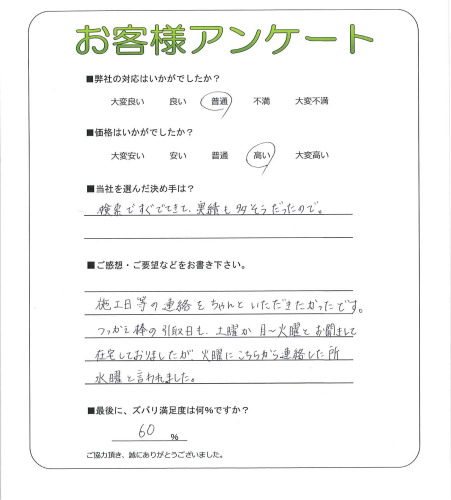 お客様アンケート
■弊社の対応はいかがでしたか？
大変良い 良い 普通 不満 大変不満
■価格はいかがでしたか？
大変安い 安い 普通 高い 大変高い
■当社を選んだ決め手は？
検索ですぐでてきて、実績も多そうだったので。
■ご感想・ご要望などをお書き下さい。
施工日等の連絡をちゃんといただきたかったです。
つっかえ棒の引取日も、土曜か月〜火曜とお聞きして
在宅しておりましたが、火曜にこちらから連絡した所
水曜と言われました。
■最後に、ズバリ満足度は何％ですか？
60 ％
ご協力頂き、誠にありがとうございました。